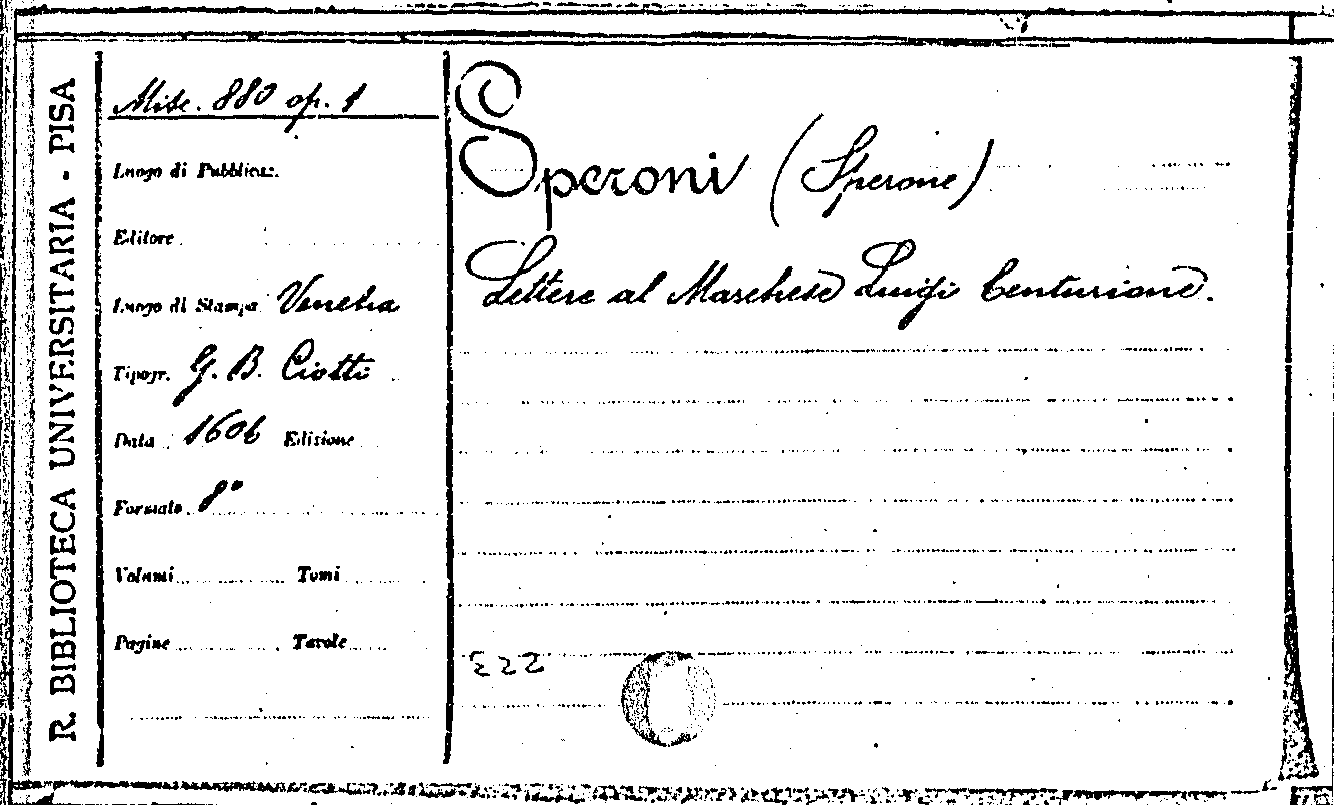 R. BIBLIOTECA UNIVERSITARIA - PISA
Misc. 880 op. 1
Luogo di Pubblicaz.
Editore
Luogo di Stampa Venetia
Tipogr. G. B. Ciotti
Data 1606 Edizione
Formato 8°
Volumi Tomi
Pagine Tavole
Speroni (Sperone)
Lettere al Marchese Luigi Centurione.